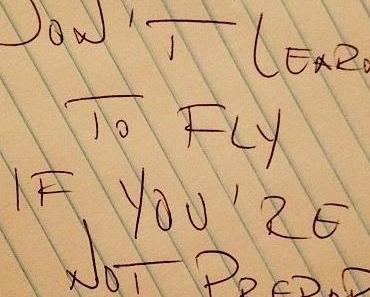 DON'T LEARN
TO FLY
IF YOU'RE
NOT PREPAR